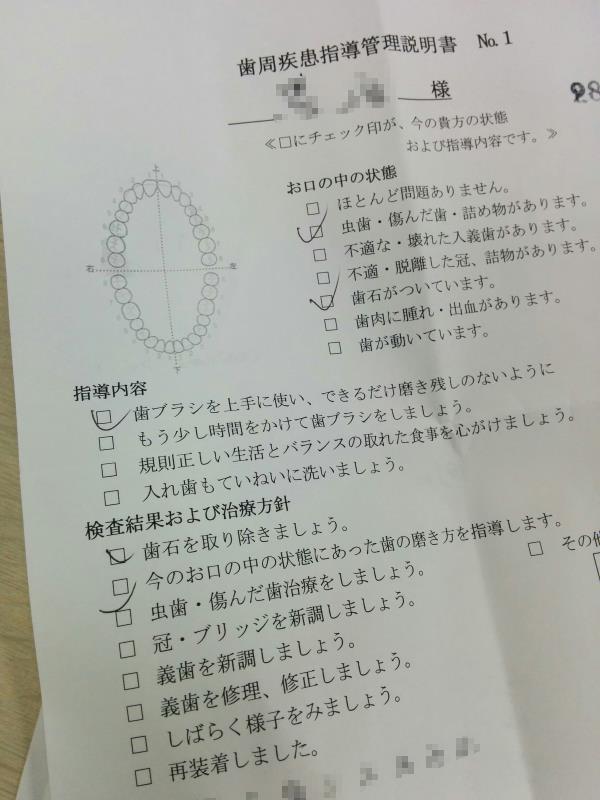 歯周疾患指導管理説明書 No.1
様
28
≪□にチェック印が、今の貴方の状態
および指導内容です。≫
上
右
左
下
お口の中の状態
□ ほとんど問題ありません。
□ 虫歯・傷んだ歯・詰め物があります。
□ 不適な・壊れた入義歯があります。
□ 不適・脱離した冠、詰物があります。
□ 歯石がついています。
□ 歯肉に腫れ・出血があります。
□ 歯が動いています。
指導内容
□ 歯ブラシを上手に使い、できるだけ磨き残しのないように
□ もう少し時間をかけて歯ブラシをしましょう。
□ 規則正しい生活とバランスの取れた食事を心がけましょう。
□ 入れ歯もていねいに洗いましょう。
検査結果および治療方針
□ 歯石を取り除きましょう。
□ 今のお口の中の状態にあった歯の磨き方を指導します。
□ その他
□ 虫歯・傷んだ歯治療をしましょう。
□ 冠・ブリッジを新調しましょう。
□ 義歯を新調しましょう。
□ 義歯を修理、修正しましょう。
□ しばらく様子をみましょう。
□ 再装着しました。